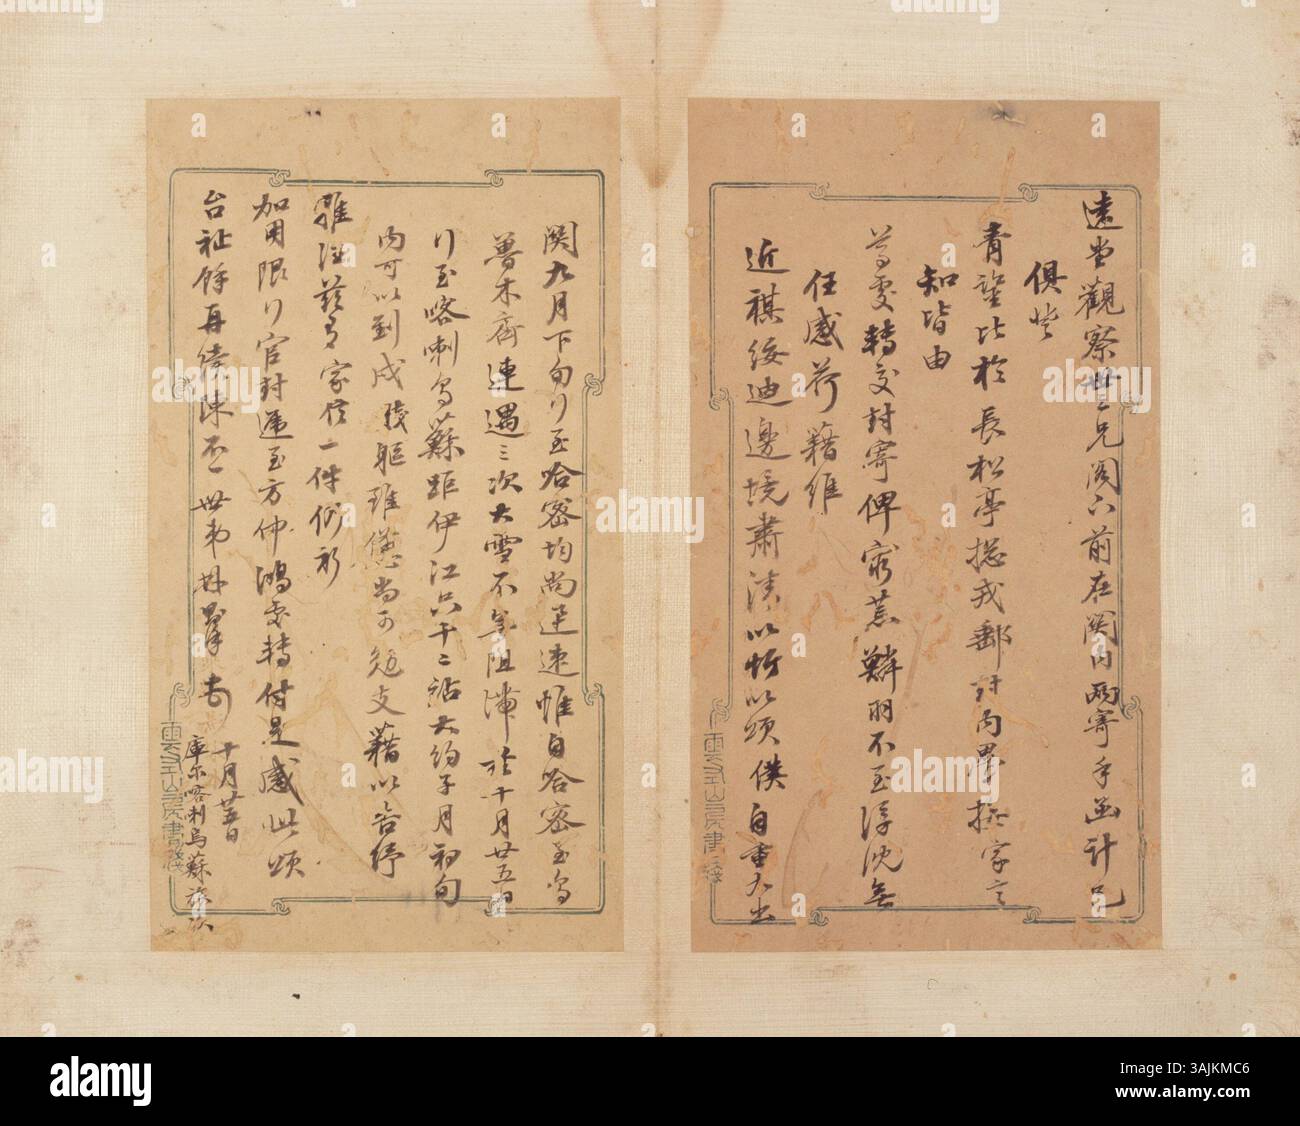 遠堂觀察世二兄閣下前在關內兩寄手函計已
俱登
青鑒比於長松亭總戎郵封內畢 家言
知皆由
尊處轉交封寄俾窮荒鱗羽不至浮沈無
任感荷藉維
近祺綏迪邊境肅清以忻以頌僕自重九出
關九月下旬行至哈密均尚迅速惟自哈密至烏
魯木齊連遇三次大雪不無阻滯於十月廿五日
行至喀喇烏蘇距伊江只十二站大約子月初旬
內可以到戍殘軀雖憊尚可勉支藉以告紓
雅注茲有家信一件仍祈
加用限行官封遞至方仲鴻處轉付是感此頌
台祉餘再續陳不一 世弟林 頓首
十月廿五日
庫爾喀喇烏蘇旅次
雲左山房書牋
雲左山房書牋
alamy
Image ID: 3AJKMC6
www.alamy.com